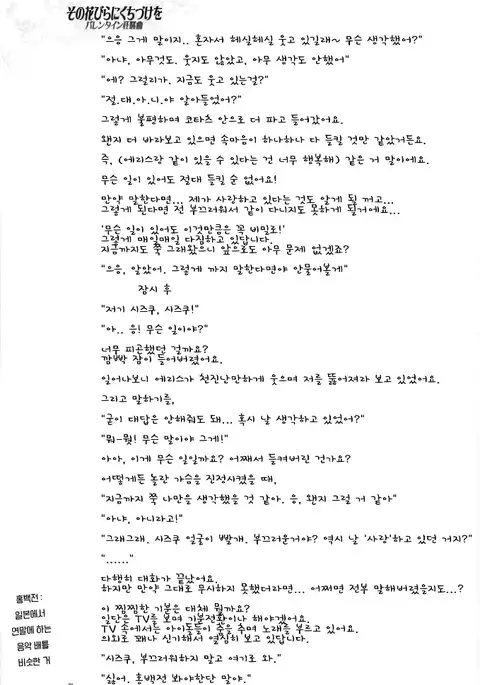 その花びらにくちづけを
バレンタイン狂騒曲
"으응 그게 말이지.. 혼자서 헤실헤실 웃고 있길래~ 무슨 생각했어?"
"아냐, 아무것도. 웃지도 않았고, 아무 생각도 안했어"
"에? 그럴리가. 지금도 웃고 있는걸?"
"절.대.아.니.야 알아들었어?"
그렇게 불평하며 코타츠 안으로 더 파고 들어갔어요.
왠지 더 바라보고 있으면 속마음이 하나하나 다 들킬 것만 같았거든요.
즉, (에리스랑 같이 있을 수 있다는 건 너무 행복해) 같은 거 말이에요.
무슨 일이 있어도 절대 들킬 순 없어요!
만약 말한다면... 제가 사랑하고 있다는 것도 알게 될 꺼고...
그렇게 된다면 전 부끄러워서 같이 다니지도 못하게 될거에요...
'무슨 일이 있어도 이것만큼은 꼭 비밀로!'
그렇게 매일매일 다짐하고 있답니다.
지금까지도 쭉 그래왔으니 앞으로도 아무 문제 없겠죠?
"으응, 알았어. 그렇게 까지 말한다면야 안물어볼게"
잠시 후
"저기 시즈쿠, 시즈쿠!"
"아.. 응! 무슨 일이야?"
너무 피곤했던 걸까요?
깜빡 잠이 들어버렸어요.
일어나보니 에리스가 천진난만하게 웃으며 저를 뚫어져라 보고 있었어요.
그리고 말하기를,
"굳이 대답은 안해줘도 돼... 혹시 날 생각하고 있었어?"
"뭐-뭣! 무슨 말이야 그게!"
아아, 이게 무슨 일일까요? 어째서 들켜버린 건가요?
어떻게든 놀란 가슴을 진정시켰을 때,
"지금까지 쭉 나만을 생각했을 것 같아. 응, 왠지 그럴 거 같아"
"아냐, 아니라고!"
"그래그래. 시즈쿠 얼굴이 빨개. 부끄러운거야? 역시 날 '사랑'하고 있던 거지?"
"......"
다행히 대화가 끝났어요.
하지만 만약 그대로 무시하지 못했더라면... 어쩌면 전부 말해버렸을지도...?
이 찝찝한 기분은 대체 뭘까요?
일단은 TV를 보며 기분전환이나 해야겠어요.
TV 속에서는 아이돌들이 춤을 추며 노래를 부르고 있어요.
의외로 꽤나 신기해서 열심히 보고 있답니다.
"시즈쿠, 부끄러워하지 말고 여기로 와."
"싫어. 홍백전 봐야한단 말야."
홍백전 :
일본에서
연말에 하는
음악 배틀
비슷한 거